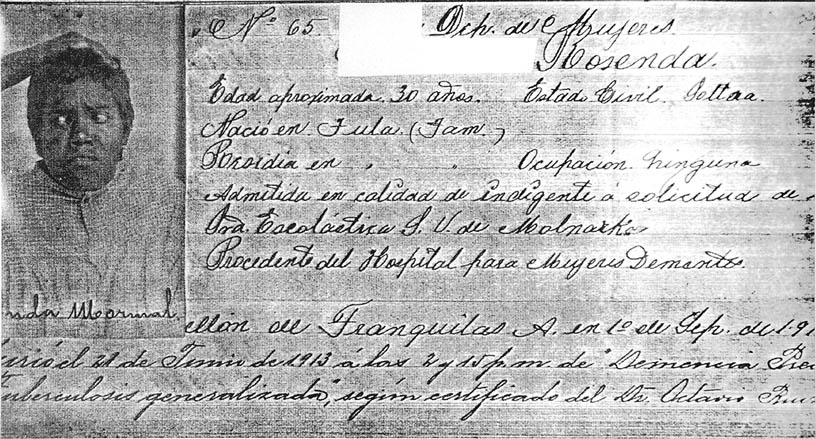 Nº 65 Dep. de Mujeres.
Rosenda.
Edad aproximada. 30 años. Estado Civil. Soltera.
Nació en Tula. (Tam.)
Residia en " " Ocupación. Ninguna
Admitida en calidad de indigente á solicitud de
Sra. Escolastica S. V. de
Procedente del Hospital para Mujeres Dementes.
Tranquilas A. en 1º de Sep. de 191
el 21 de Junio de 1913 á las 2 y 15 p.m. de "Demencia
uberculosis generalizada", según certificado del Dr. Octavio